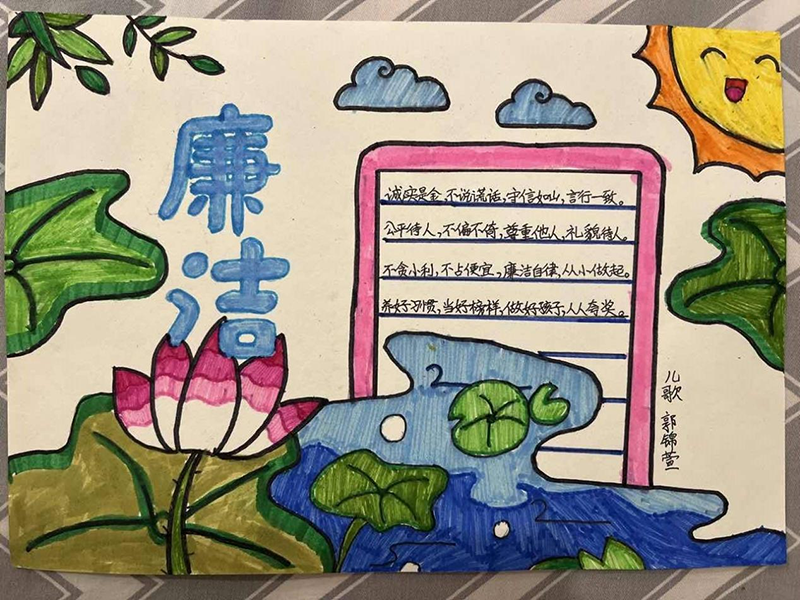 廉洁
诚实是金,不说谎话,守信如山,言行一致。
公平待人,不偏不倚,尊重他人,礼貌待人。
不贪小利,不占便宜,廉洁自律,从小做起。
养好习惯,当好榜样,做好孩子,人人夸奖。
儿歌 郭锦萱